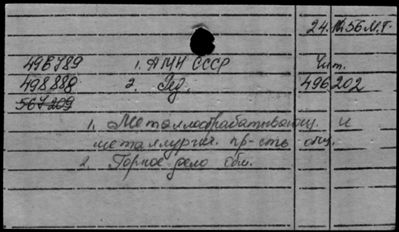 24.XI.56 М.Г.
49В789 1. АМН СССР Чит.
498888 2. Ред. 496202
567209
1. Металлообрабатывающ. и
металлургич. пр-сть общ.
2. Горное дело общ.